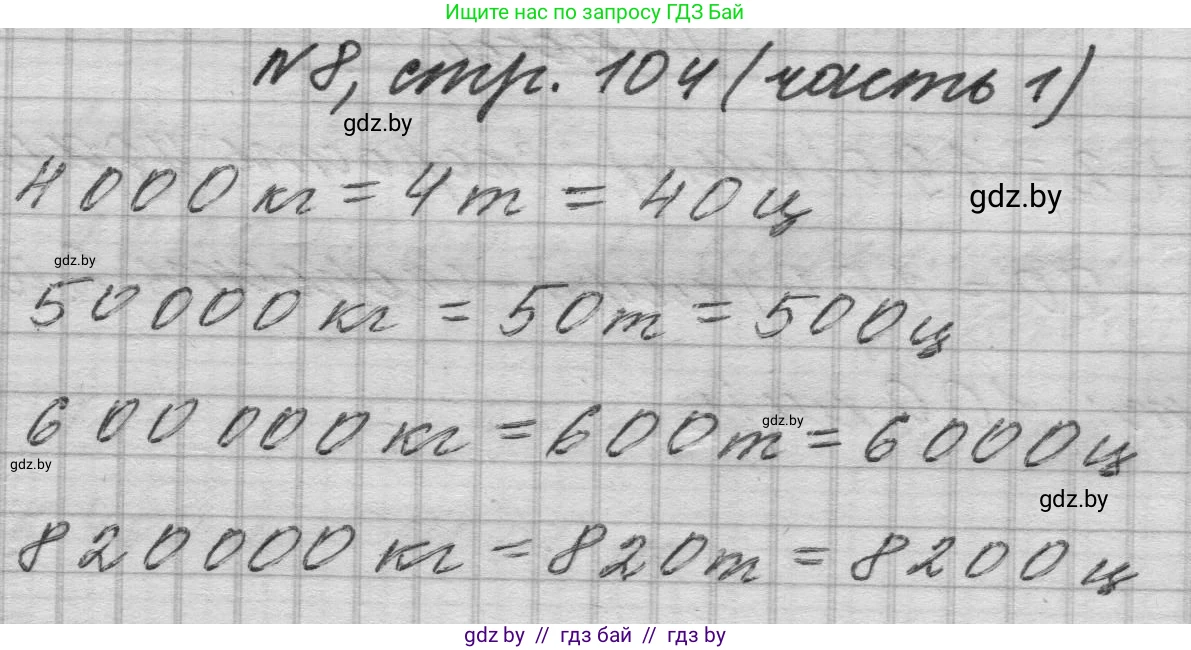 Ищите нас по запросу ГДЗ Бай
N8, стр. 104 (часть 1)
gdz.by
4000 кг = 4 т = 40 ц
gdz.by
gdz.by
50 000 кг = 50 т = 500 ц
600 000 кг = 600 т = 6000 ц
gdz.by
gdz.by
gdz.by
820000 кг = 820 т = 8200 ц
gdz.by // гдз бай // гдз by